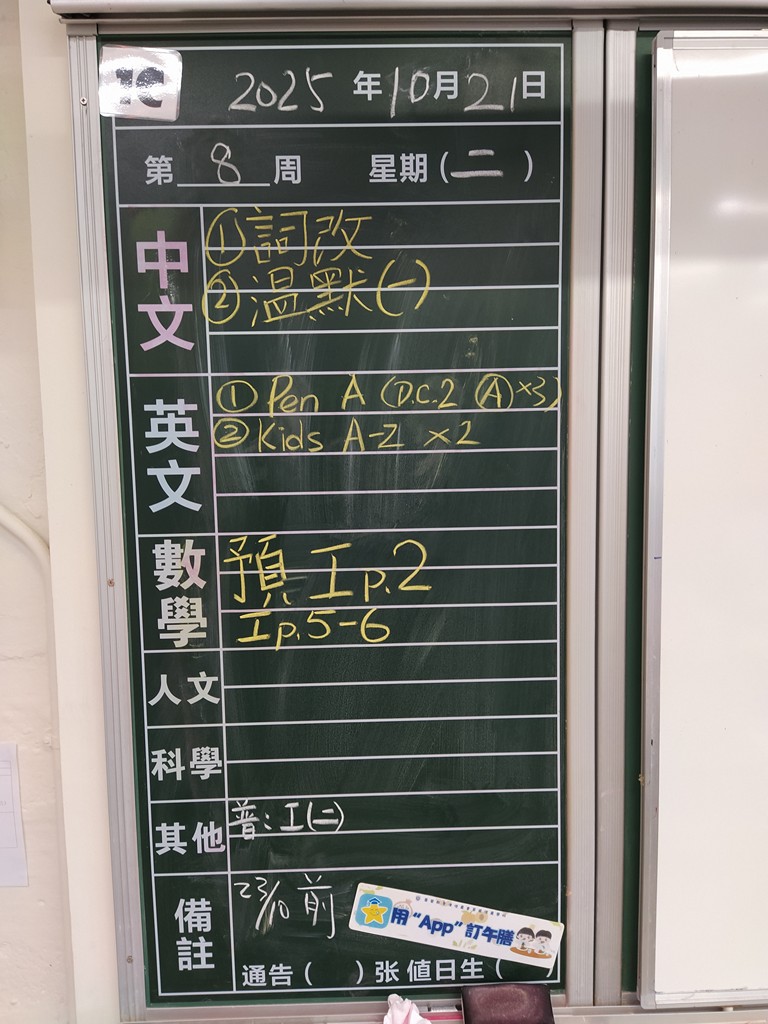 1C
2025 年 10 月 21 日
第 8 周 星期 (二)
中文
① 詞改
② 溫默(一)
英文
① Pen A (D.C.2 Ⓐ×3)
② Kids A-Z ×2
數學
預 工 p.2
工 p.5-6
人文
科學
其他
普: 工(二)
備註
23/10 前
用“App”訂午膳
通告 ( ) 张 值日生 ( )